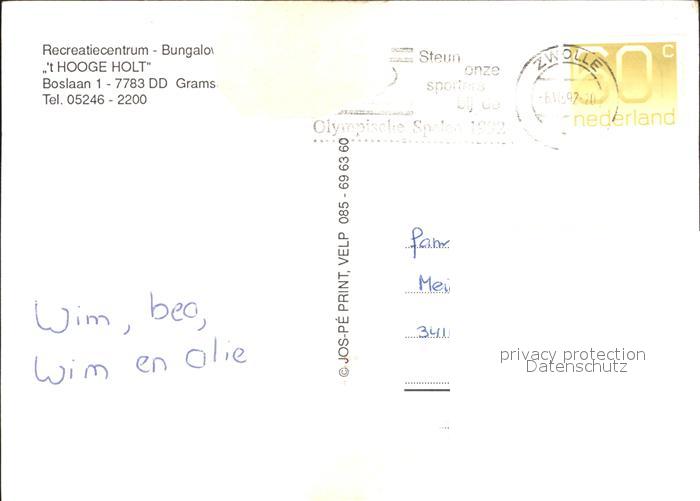 Recreatiecentrum - Bungalow
„'t HOOGE HOLT"
Boslaan 1 - 7783 DD Grams
Tel. 05246 - 2200
Steun
onze
sporters
bij de
Olympische Spelen 1992
ZWOLLE
60 c
nederland
© JOS-PÉ PRINT, VELP 085 - 69 63 60
fam
Mei
341
Wim, bea,
Wim en Olie
privacy protection
Datenschutz